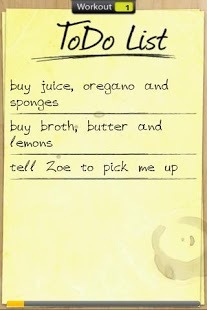 Workout 1
ToDo List
buy juice, oregano and
sponges
buy broth, butter and
lemons
tell Zoe to pick me up